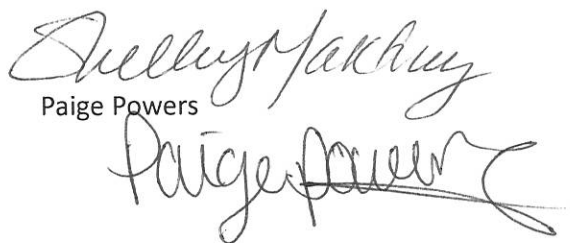 Shelley Makhuy
Paige Powers
Paige Powers